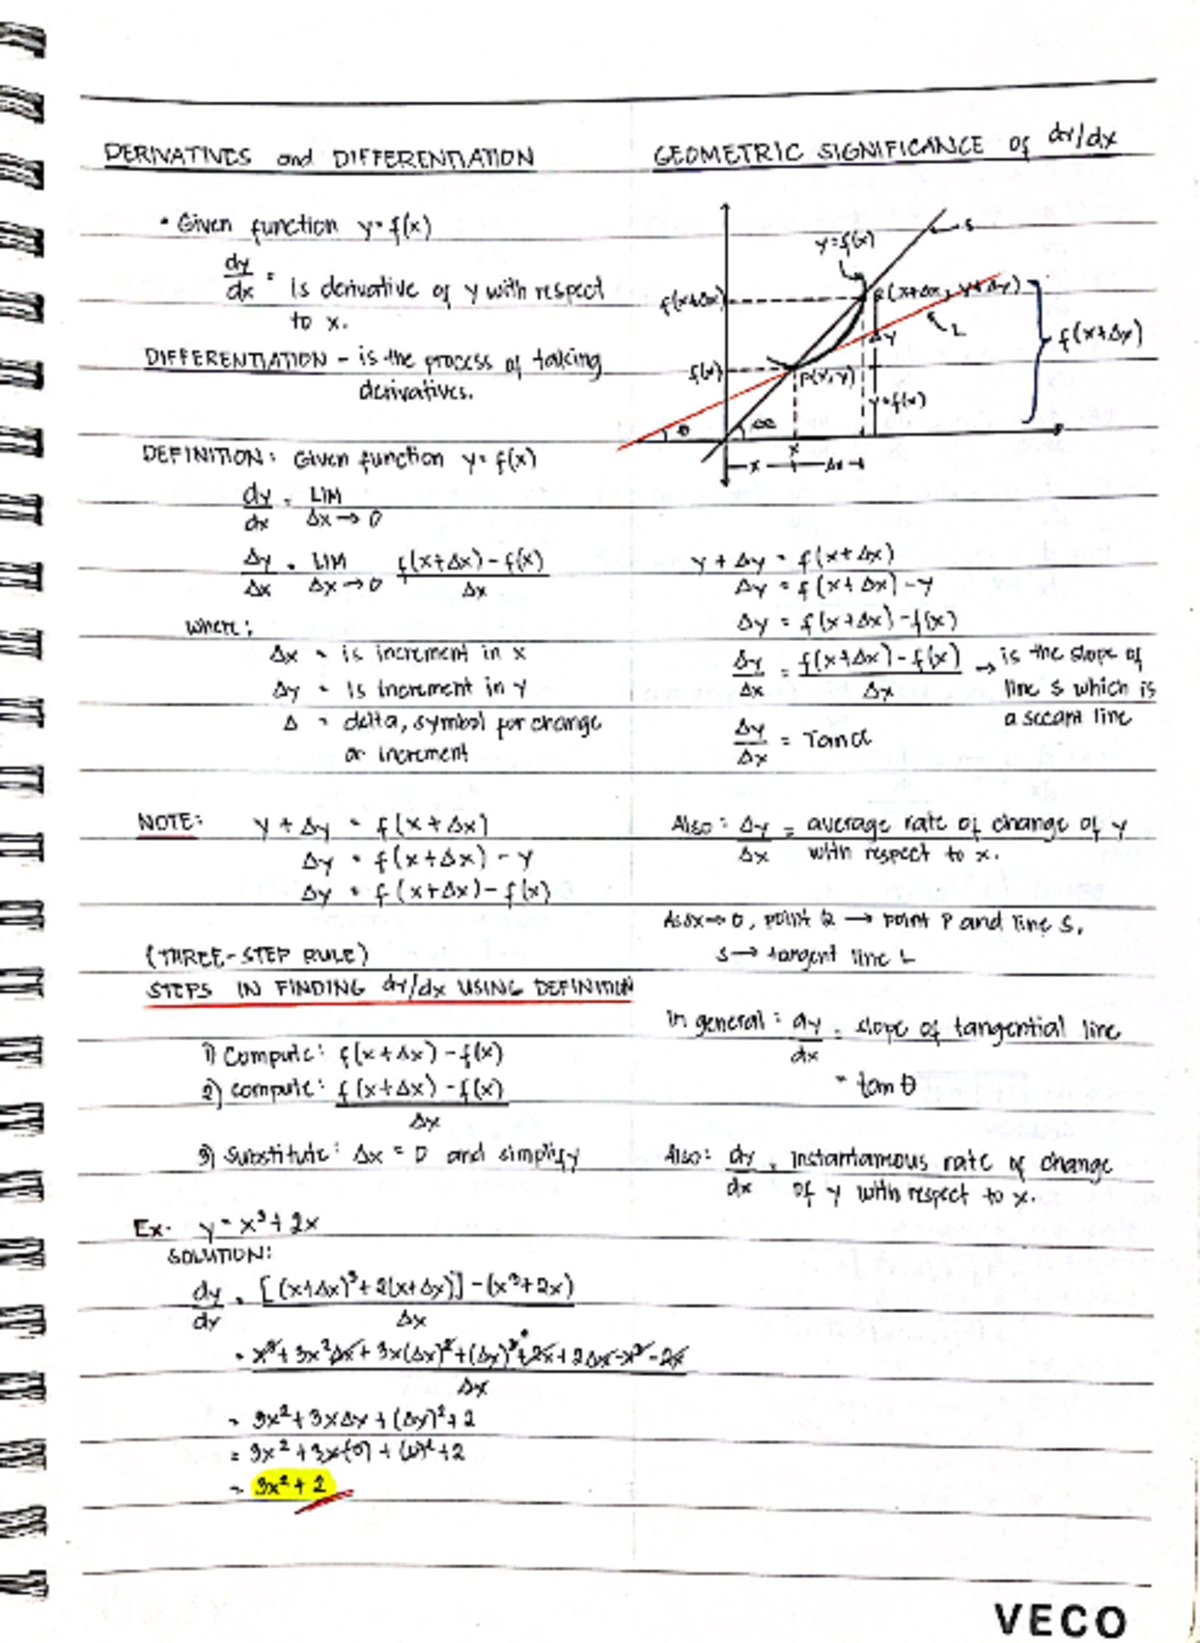 DERIVATIVES and DIFFERENTIATION
• Given function y = f(x)
dy/dx = is derivative of y with respect
to x.
DIFFERENTIATION - is the process of taking
derivatives.
DEFINITION: Given function y = f(x)
dy/dx = LIM Δx → 0
Δy/Δx = LIM Δx → 0 f(x+Δx) - f(x) / Δx
where:
Δx = is increment in x
Δy = is increment in y
Δ = delta, symbol for change
or increment
NOTE: y + Δy = f(x + Δx)
Δy = f(x+Δx) - y
Δy = f(x+Δx) - f(x)
(THREE-STEP RULE)
STEPS IN FINDING dy/dx USING DEFINITION
1) Compute: f(x+Δx) - f(x)
2) compute: f(x+Δx) - f(x) / Δx
3) Substitute: Δx = 0 and simplify
Ex. y = x³ + 2x
SOLUTION:
dy/dx = [(x+Δx)³ + 2(x+Δx)] - (x³+2x) / Δx
= x³ + 3x²Δx + 3x(Δx)² + (Δx)³ + 2x + 2Δx - x³ - 2x / Δx
= 3x² + 3xΔx + (Δx)² + 2
= 3x² + 3x(0) + (0)² + 2
= 3x² + 2
GEOMETRIC SIGNIFICANCE of dy/dx
y = f(x)
S
f(x+Δx)
Q(x+Δx, y+Δy)
L
Δy
f(x+Δx)
f(x)
P(x,y)
y=f(x)
θ
α
x
x
Δx
y + Δy = f(x+Δx)
Δy = f(x+Δx) - y
Δy = f(x+Δx) - f(x)
Δy/Δx = f(x+Δx) - f(x) / Δx → is the slope of
line S which is
a secant line
Δy/Δx = Tan α
Also: Δy/Δx = average rate of change of y
with respect to x.
As Δx → 0, point Q → point P and line S,
S → tangent line L
In general: dy/dx = slope of tangential line
= tan θ
Also: dy/dx = instantaneous rate of change
of y with respect to x.
VECO